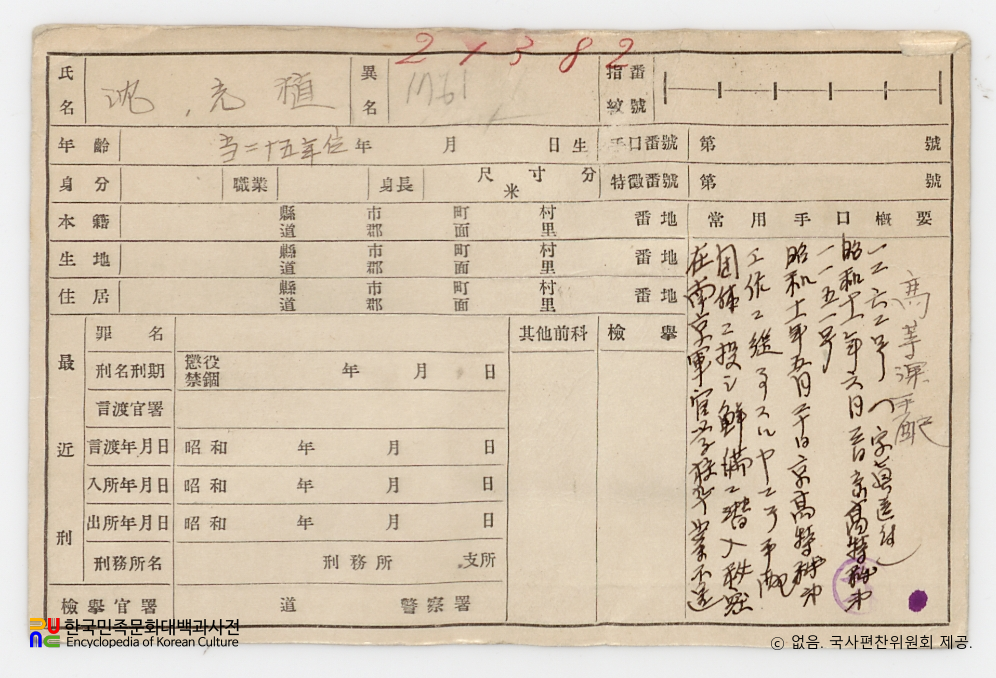 21382
氏名 沈 元 植 異名 指紋番號
年齡 当二十五年位 年 月 日生 手口番號 第 號
身分 職業 身長 尺 寸 分 米 特徵番號 第 號
本籍 縣道 市郡 町面 村里 番地 常用手口概要
生地 縣道 市郡 町面 村里 番地
住居 縣道 市郡 町面 村里 番地
最近刑 罪名 其他前科 檢擧
刑名刑期 懲役 禁錮 年 月 日
言渡官署
言渡年月日 昭和 年 月 日
入所年月日 昭和 年 月 日
出所年月日 昭和 年 月 日
刑務所名 刑務所 支所
檢擧官署 道 警察署
昭和十一年六月 日京高特秘第
一一五一号
昭和十一年五月二十日京高特秘第
工作ニ
団体ニ投シ鮮満ニ潜入秘密
在南京軍官学校卒業不逞
한국민족문화대백과사전
Encyclopedia of Korean Culture
ⓒ 없음. 국사편찬위원회 제공.